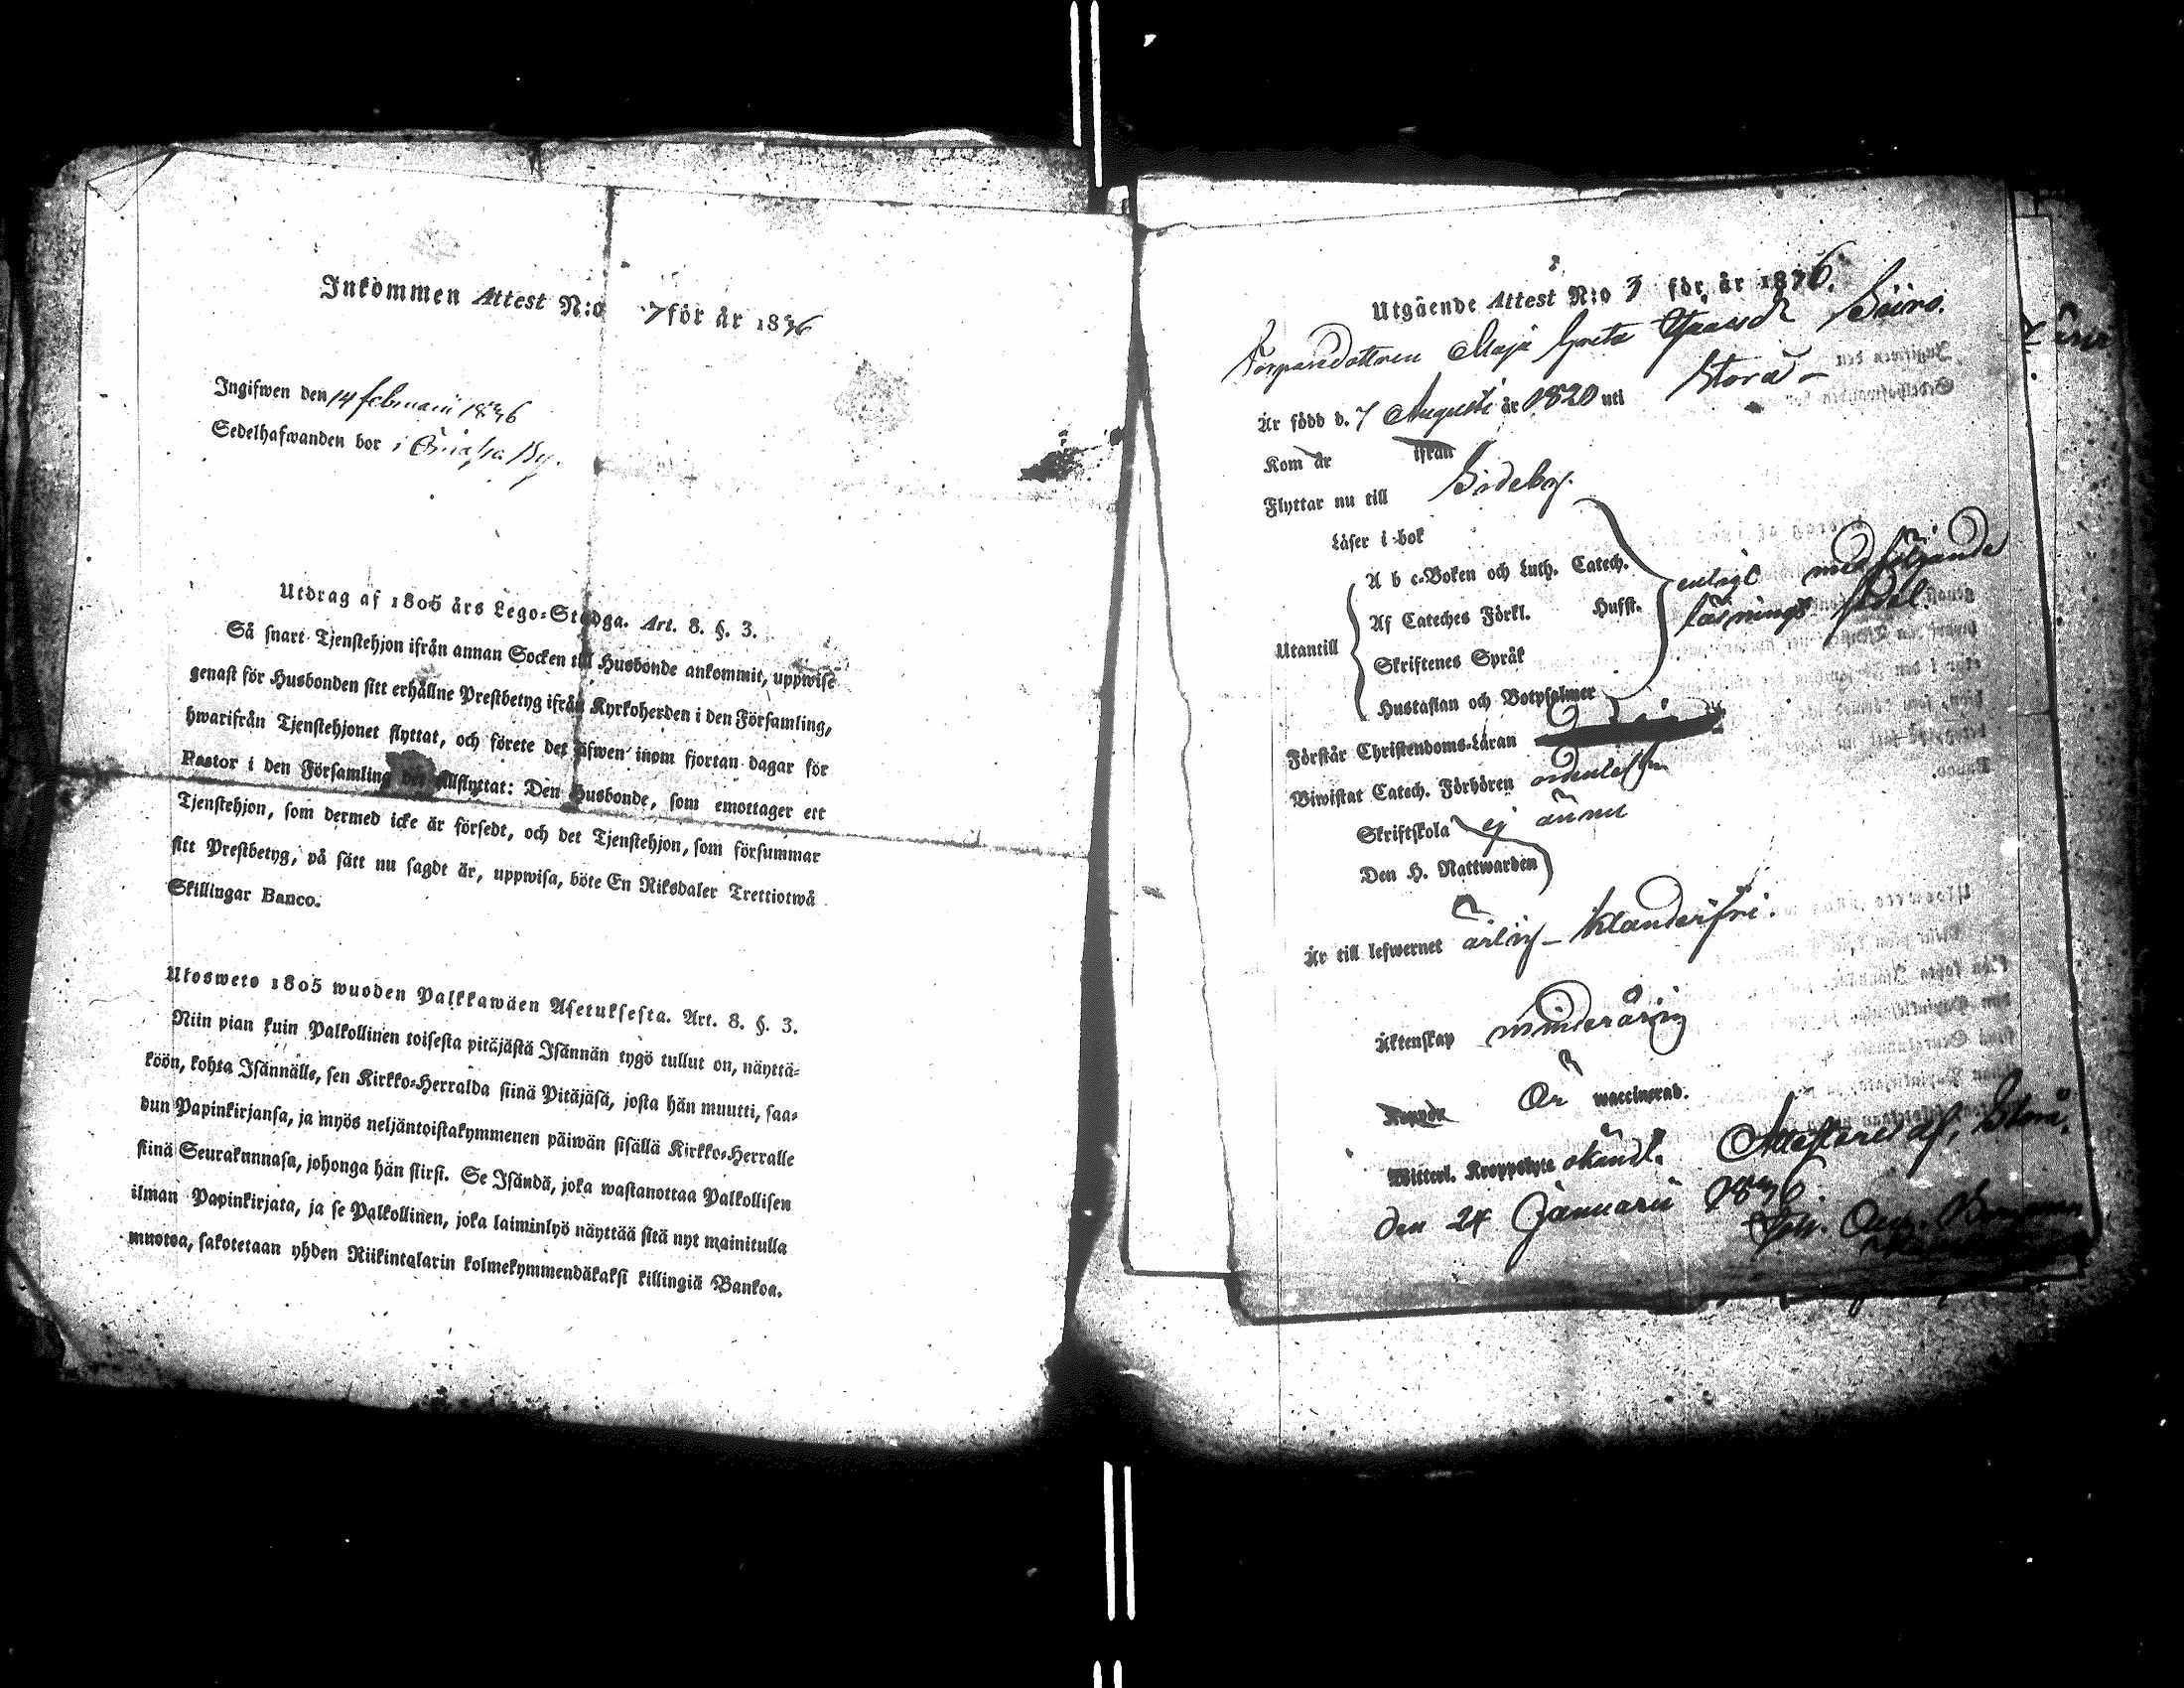 Inkommen Attest N:o 7 för år 1836
Ingifwen den 14 februarii 1836
Sedelhafwanden bor i By.
Utdrag af 1805 års Lego-Stadga. Art. 8. §. 3.
Så snart Tjenstehjon ifrån annan Socken till Husbonde ankommit, uppwise
genast för Husbonden sitt erhållne Prestbetyg ifrån Kyrkoherden i den Församling,
hwarifrån Tjenstehjonet flyttat, och förete det äfwen inom fjortan dagar för
Pastor i den Församling dit tillflyttat: Den Husbonde, som emottager ett
Tjenstehjon, som dermed icke är försedt, och det Tjenstehjon, som försummar
sitt Prestbetyg, på sätt nu sagdt är, uppwisa, böte En Riksdaler Trettiotwå
Skillingar Banco.
Ulosweto 1805 wuoden Palkkawäen Asetuksesta. Art. 8. §. 3.
Niin pian kuin Palkollinen toisesta pitäjästä Isännän tygö tullut on, näyttä-
köön, kohta Isännälle, sen Kirkko-Herralda siinä Pitäjäsä, josta hän muutti, saa-
dun Papinkirjansa, ja myös neljäntoistakymmenen päiwän sisällä Kirkko-Herralle
siinä Seurakunnasa, johonga hän siirsi. Se Isändä, joka wastanottaa Palkollisen
ilman Papinkirjata, ja se Palkollinen, joka laiminlyö näyttää sitä nyt mainitulla
muotoa, sakotetaan yhden Riikintalarin kolmekymmendäkaksi killingiä Bankoa.
Utgående Attest N:o 3 för år 1836.
Torparedottren Maja Greta
Är född d. 7 Augusti år 1820 uti Storå
Kom år ifrån
Flyttar nu till Sideby.
Läser i bok
A b c-Boken och Luth. Catech.
enligt medföljande
Af Cateches Förkl. Husft.
läsnings sedel.
Utantill
Skriftenes Språk
Hustaflan och Botpsalmer
Förstår Christendoms-Läran
Biwistat Catech. Förhören ordentel.
Skriftskola ej ännu
Den H. Nattwarden
Är till lefwernet ärlig klanderfri.
Äktenskap minderårig
Är waccinerad.
Witterl. Kroppslyte okändt. Attesterar af, Storå,
den 24 Januarii 1836.
Joh.